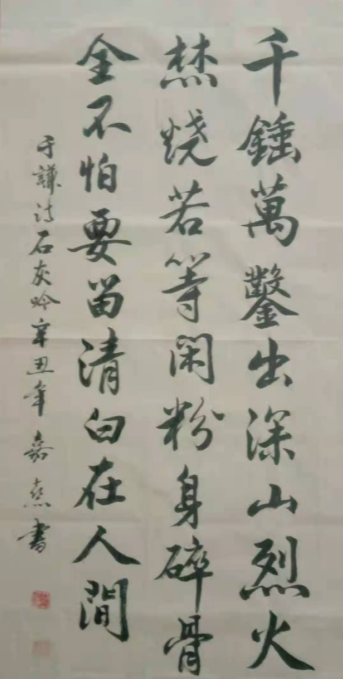 千錘萬鑿出深山烈火
焚燒若等閑粉身碎骨
全不怕要留清白在人間
于謙詩石灰吟辛丑年嘉燕書